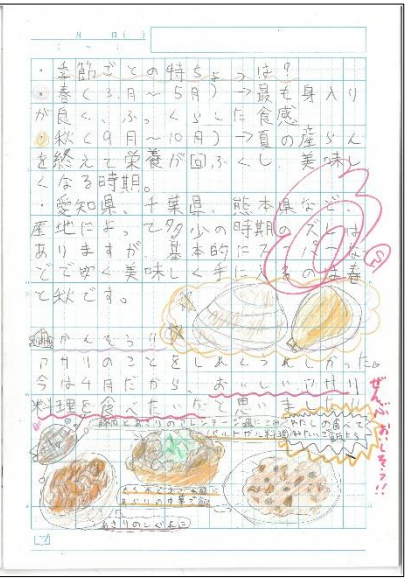 月 日( )
・季節ごとの特ちょうは?
・春(3月～5月)→最も身入り
が良く、ぷっくらした食感
・秋(9月～10月)→夏の産らん
を終えて栄養が回ふくし、美味し
くなる時期。
・愛知県、千葉県、熊本県など、
産地によって多少の時期のズレは
ありますが、基本的にスーパーな
どで安く美味しく手に入るのは春
と秋です。
かんそう!!
アサリのことをしれてうれしかった。
今は4月だから、おいしいアサリ
料理を食べたいなと思いました!!
ぜんぶおいしそう!!